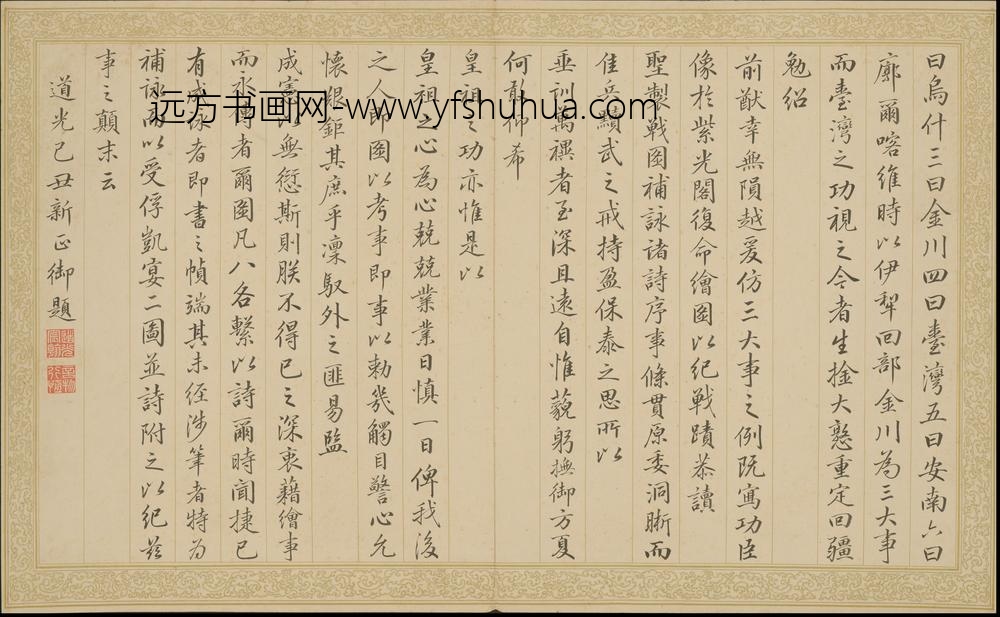 曰烏什三曰金川四曰臺灣五曰安南六曰
廓爾喀維時以伊犁回部金川為三大事
而臺灣之功視之今者生擒大憝重定回疆
勉紹
前猷幸無隕越爰仿三大事之例既寫功臣
像於紫光閣復命繪圖以紀戰蹟恭讀
聖製戰圖補詠諸詩序事條貫原委洞晰而
佳兵黷武之戒持盈保泰之思所以
垂訓萬禩者至深且遠自惟藐躬撫御方夏
何敢仰希
皇祖之功亦惟是以
皇祖之心為心兢兢業業日慎一日俾我後
之人即圖以考事即事以勅幾觸目警心允
懷艱鉅其庶乎凜馭外之匪易監
成憲以無愆斯則朕不得已之深衷藉繪事
而永傳者爾圖凡八各繫以詩爾時聞捷已
有成詠者即書之幀端其未經涉筆者特為
補詠而以受俘凱宴二圖並詩附之以紀茲
事之顛末云
道光己丑新正御題
远方书画网-www.yfshuhua.com